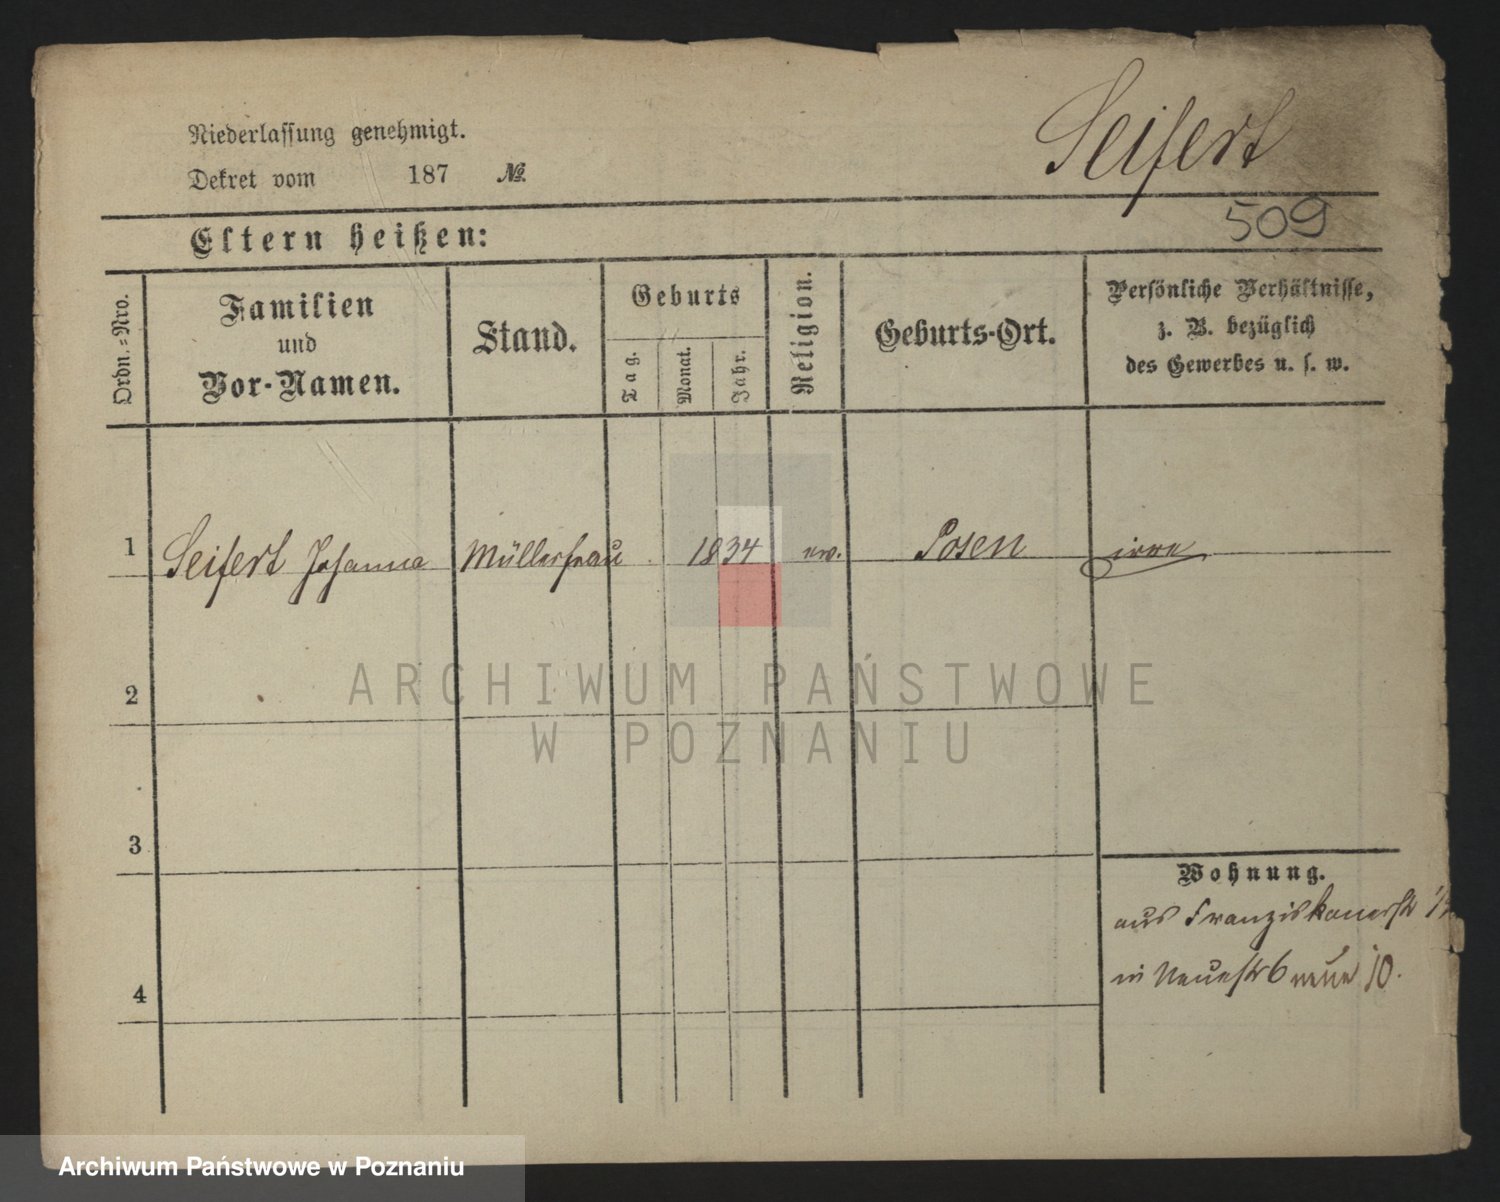 Seifert
Niederlassung genehmigt.
Dekret vom 187 №
509
Eltern heißen:
Ordn.-Nro.
Familien
und
Vor-Namen.
Stand.
Geburts
Tag.
Monat.
Jahr.
Religion.
Geburts-Ort.
Persönliche Verhältnisse,
z. B. bezüglich
des Gewerbes u. s. w.
1 Seifert Johanna Müllerfrau 1834 ev. Posen irre
2
3
4
Wohnung.
aus Franziskanerstr
in Neuestr 6 neue 10.
ARCHIWUM PAŃSTWOWE
W POZNANIU
Archiwum Państwowe w Poznaniu